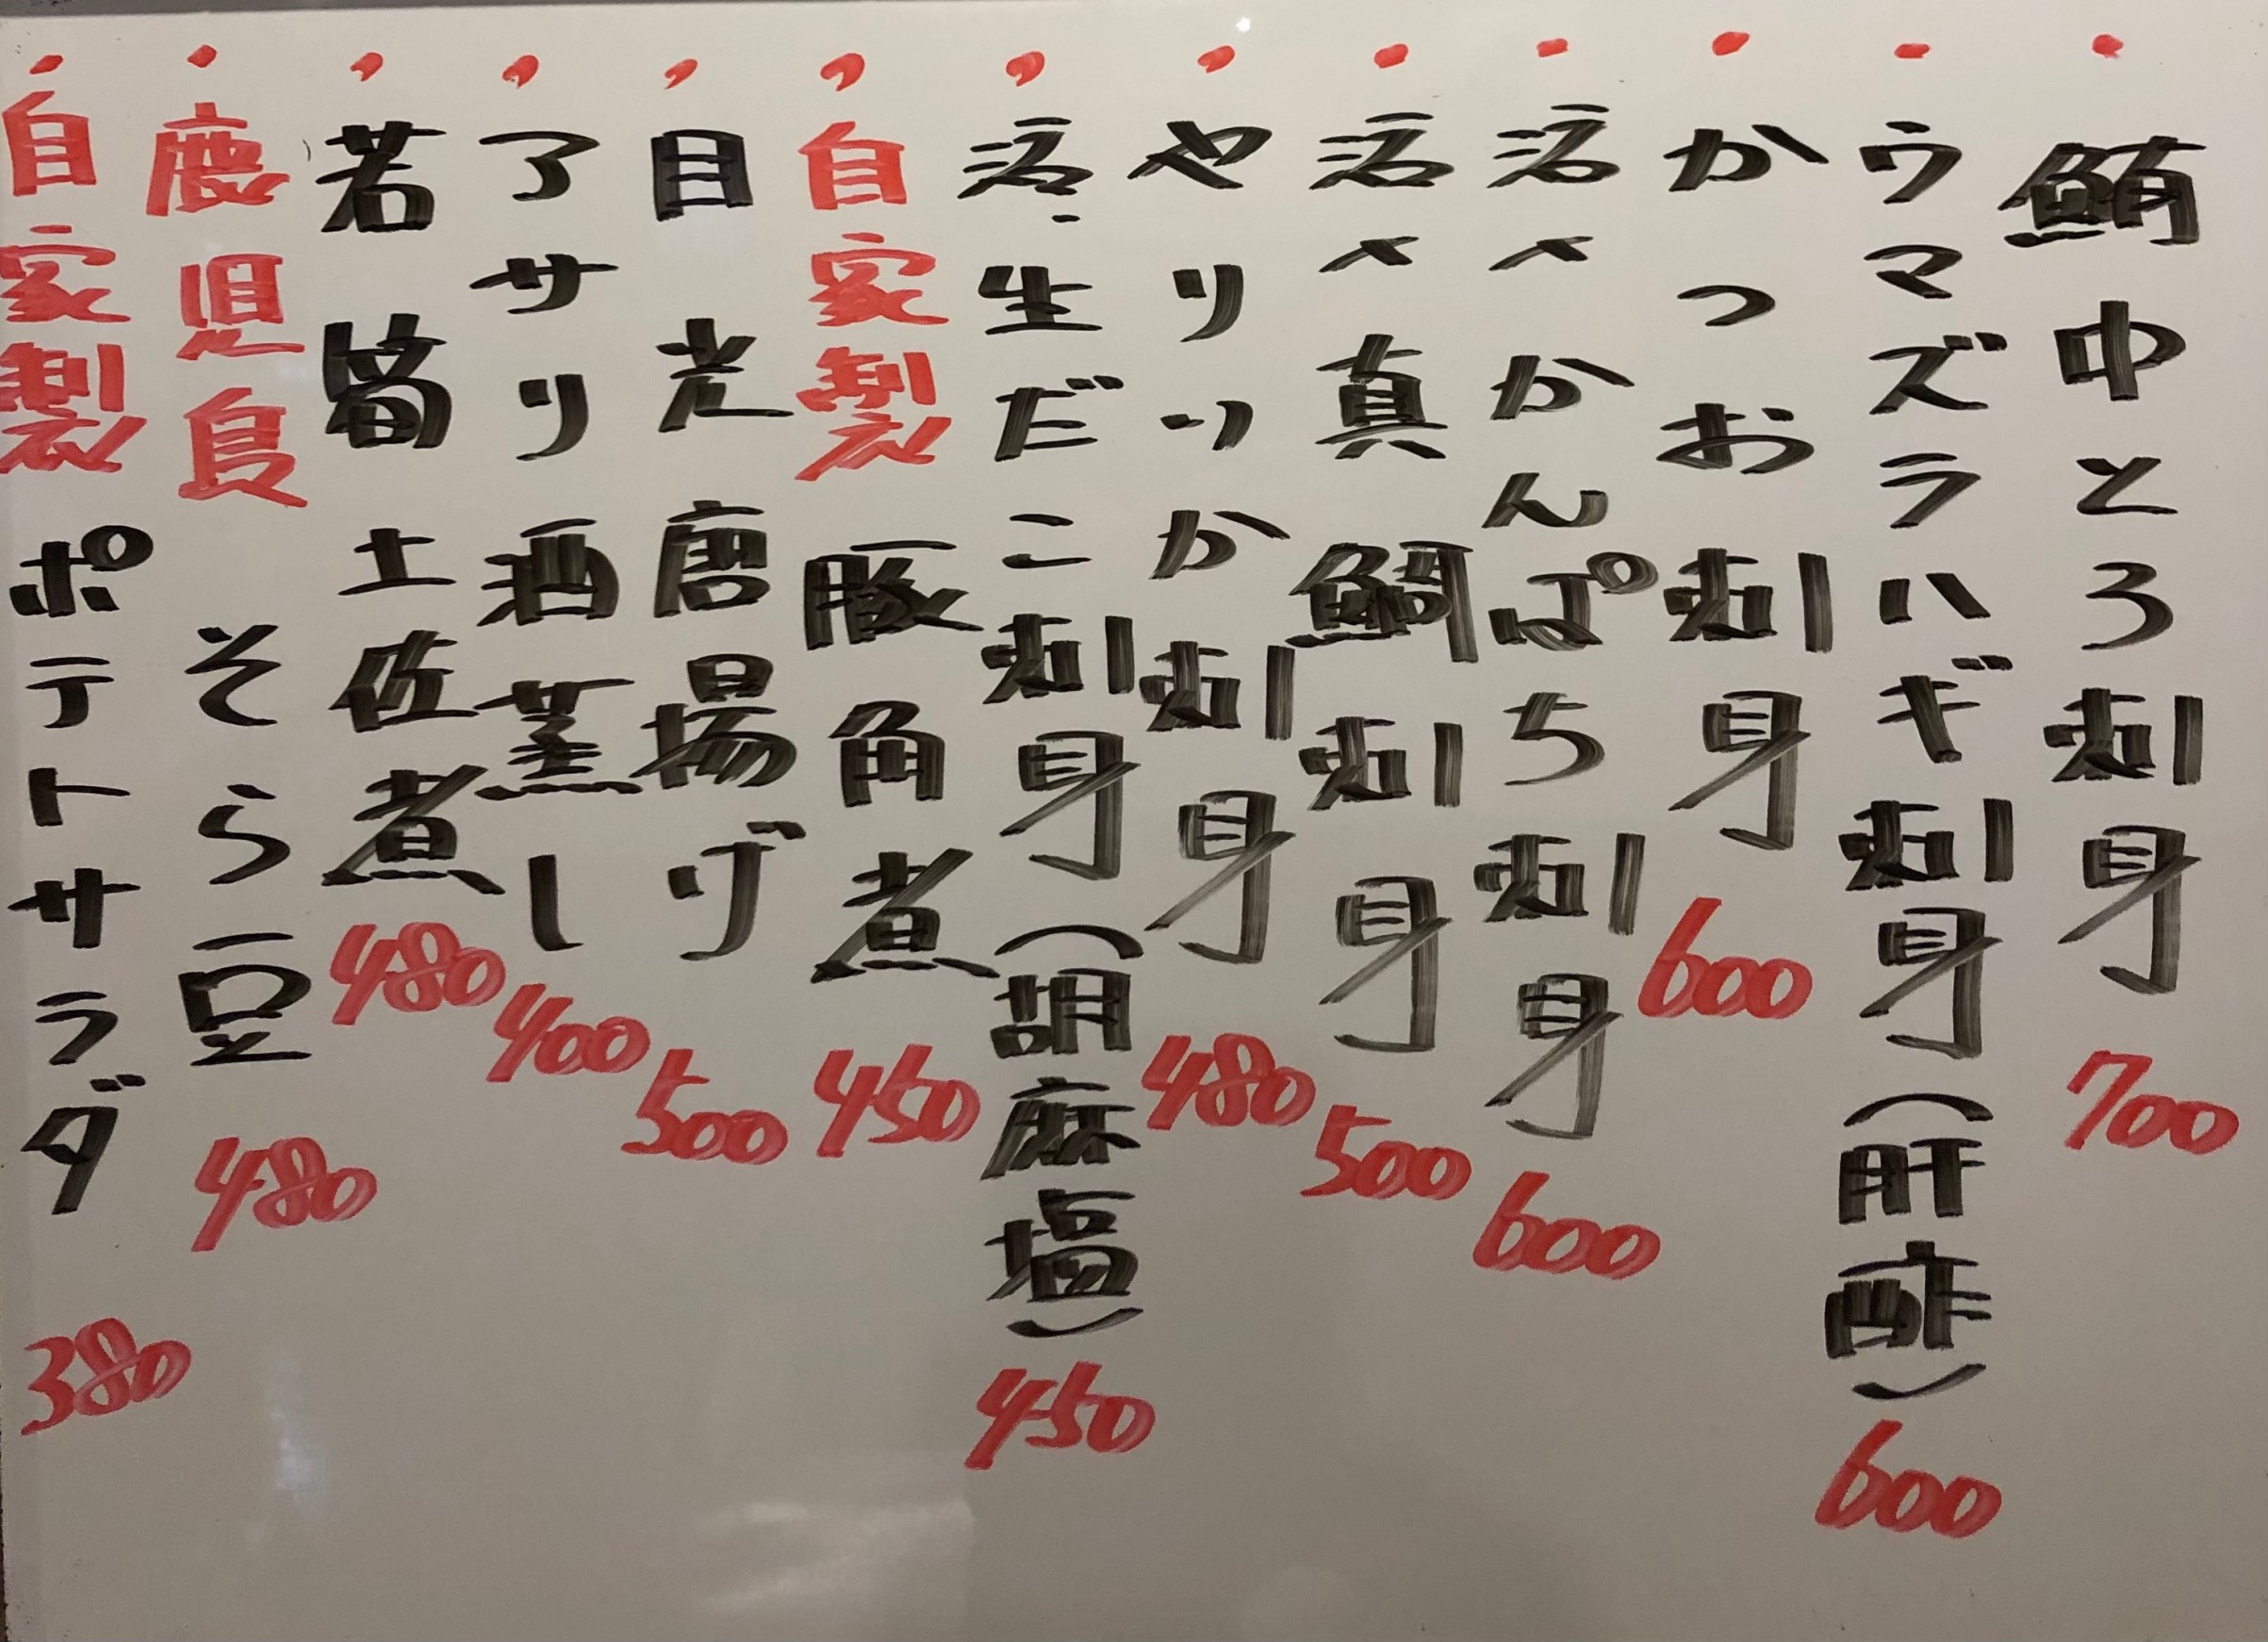 ・鮪中とろ刺身 700
・ウマズラハギ刺身(肝酢) 600
・かつお刺身 600
・活〆かんぱち刺身 600
・活〆真鯛刺身 500
・やりいか刺身 480
・活、生だこ刺身(胡麻塩) 450
・自家製豚角煮 450
・目光唐揚げ 500
・アサリ酒蒸し 400
・若筍土佐煮 480
・鹿児島そら豆 480
・自家製ポテトサラダ 380